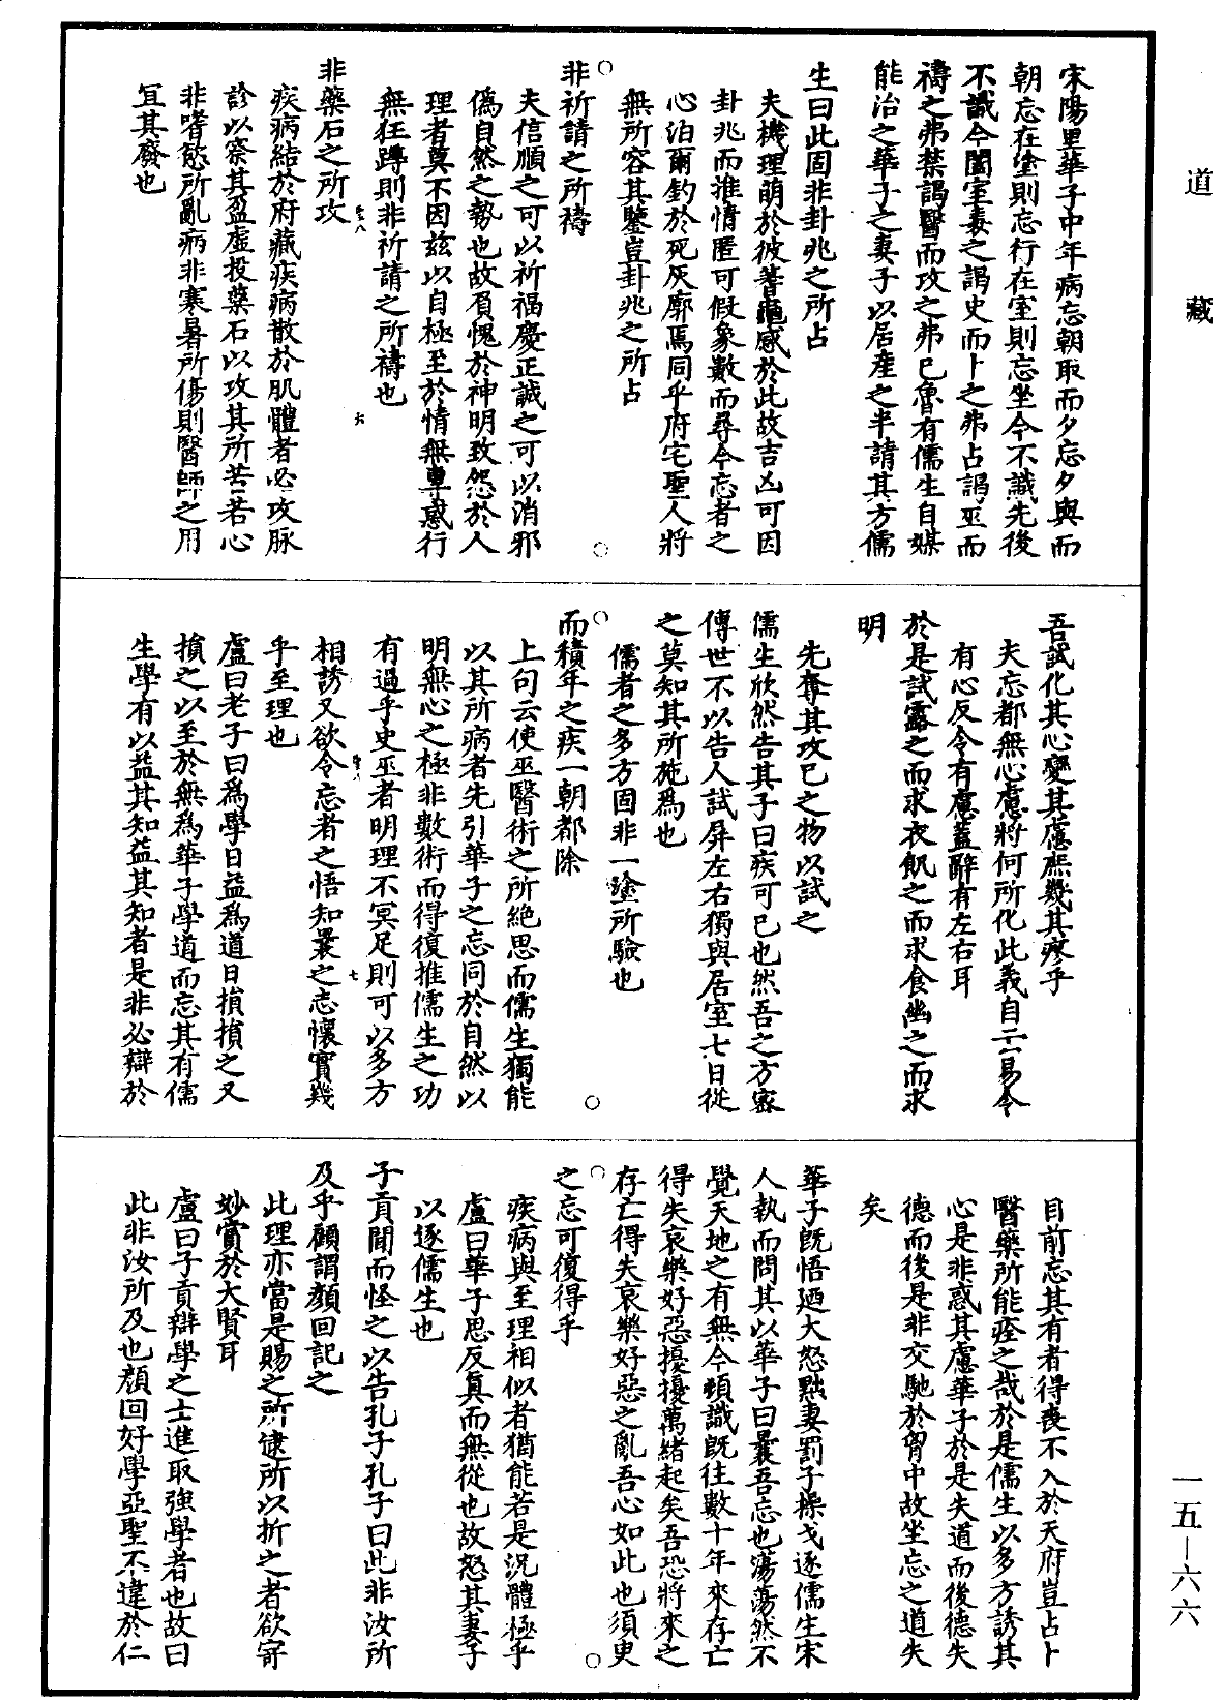 道藏
宋陽里華子中年病忘朝取而夕忘夕與而
朝忘在塗則忘行在室則忘坐今不識先後
不識今闔室毒之謁史而卜之弗占謁巫而
禱之弗禁謁醫而攻之弗已魯有儒生自媒
能治之華子之妻子以居産之半請其方儒
生曰此固非卦兆之所占
夫機理萌於彼蓍龜感於此故吉凶可因
卦兆而推情匿可假象數而尋今忘者之
心泊爾鈞於死灰廓焉同乎府宅聖人將
無所容其鑒豈卦兆之所占
○
○
非祈請之所禱
夫信順之可以祈福慶正誠之可以消邪
僞自然之勢也故負愧於神明致怨於人
理者莫不因兹以自極至於情無專惑行
無狂蹲則非祈請之所禱也
六
非藥石之所攻
疾病結於府藏疾病散於肌體者必攻脉
診以察其盈虚投藥石以攻其所苦若心
非嗜慾所亂病非寒暑所傷則醫師之用
冝其廢也
吾試化其心變其慮庶幾其瘳乎
夫忘都無心慮將何所化此義自云易令
有心反令有慮蓋辭有左右耳
於是試露之而求衣飢之而求食幽之而求
明
先奪其攻已之物以試之
儒生欣然告其子曰疾可已也然吾之方密
傳世不以告人試屏左右獨與居室七日從
之莫知其所施爲也
儒者之多方固非一塗所驗也
○
○
而積年之疾一朝都除
上句云使巫醫術之所絶思而儒生獨能
以其所病者先引華子之忘同於自然以
明無心之極非數術而得復推儒生之功
有過乎史巫者明理不冥足則可以多方
七
相誘又欲令忘者之悟知曩之忘懷實幾
乎至理也
盧曰老子曰爲學日益爲道日損損之又
損之以至於無爲華子學道而忘其有儒
生學有以益其知益其知者是非必辯於
目前忘其有者得喪不入於天府豈占卜
醫藥所能痊之哉於是儒生以多方誘其
心是非惑其慮華子於是失道而後德失
德而後是非交馳於胷中故坐忘之道失
矣
華子既悟廼大怒黜妻罰子操戈逐儒生宋
人執而問其以華子曰曩吾忘也蕩蕩然不
覺天地之有無今頓識既往數十年來存亡
得失哀樂好惡擾擾萬緒起矣吾恐將來之
存亡得失哀樂好惡之亂吾心如此也須臾
○
○
之忘可復得乎
疾病與至理相似者猶能若是況體極乎
盧曰華子思反真而無從也故怒其妻子
以逐儒生也
子貢聞而怪之以告孔子孔子曰此非汝所
及乎顧謂顔回記之
此理亦當是賜之所逮所以折之者欲寄
妙賞於大賢耳
盧曰子貢辯學之士進取強學者也故曰
此非汝所及也顔回好學亞聖不違於仁
一五—六六